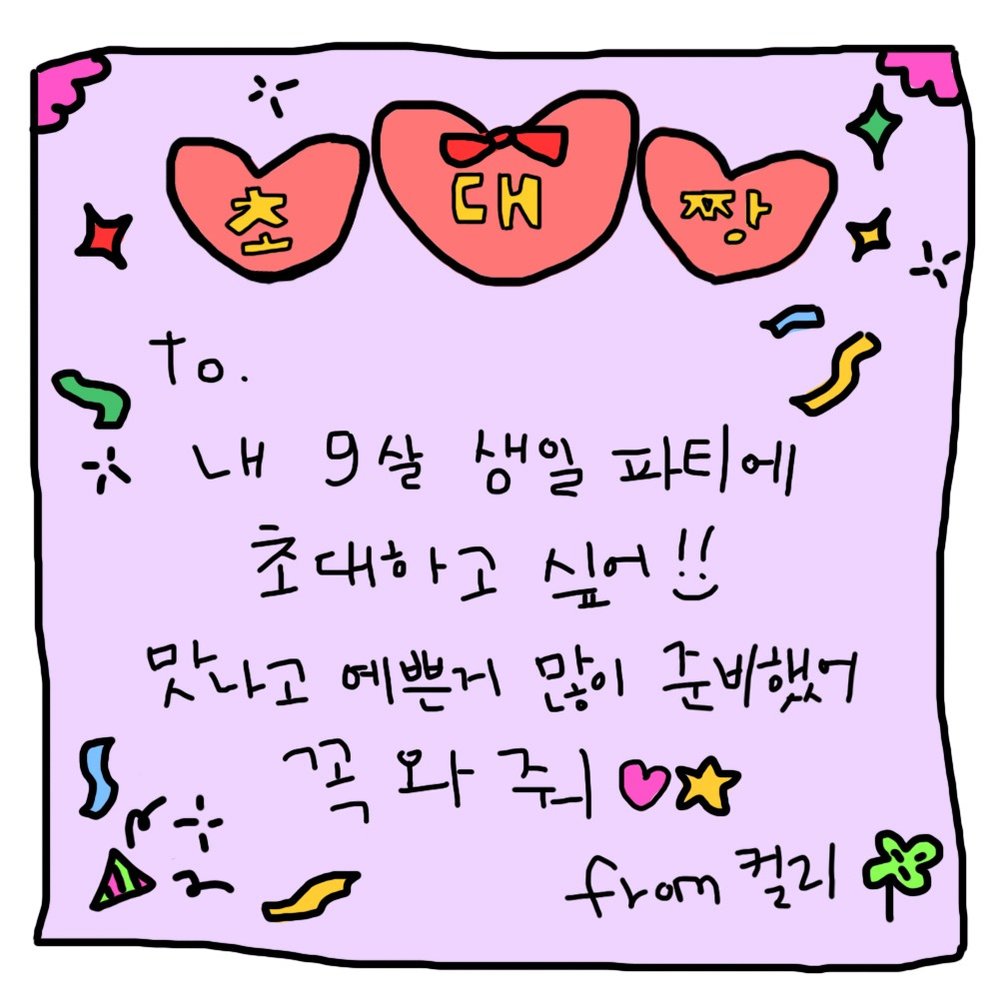 초대짱
To.
내 9살 생일 파티에
초대하고 싶어!!
맛나고 예쁜거 많이 준비했어
꼭 와 줘
from 컬리